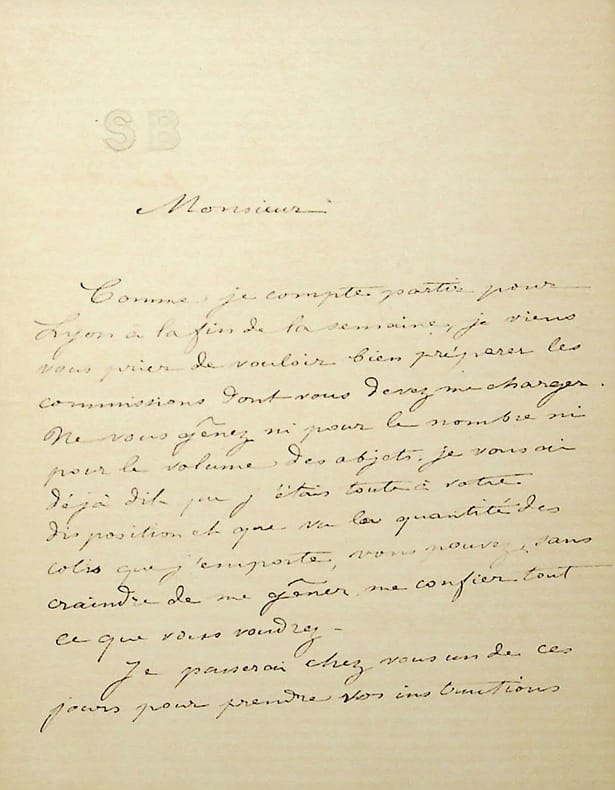 SB
Monsieur
Comme je compte partir pour
Lyon à la fin de la semaine, je viens
vous prier de vouloir bien préparer les
commissions dont vous devez me charger.
Ne vous gênez ni pour le nombre ni
pour le volume des objets, je vous ai
déjà dit que j'étais toute à votre
disposition et que vu la quantité des
colis que j'emporte, vous pouvez, sans
craindre de me gêner, me confier tout
ce que vous voudrez -
Je passerai chez vous un de ces
jours pour prendre vos instructions